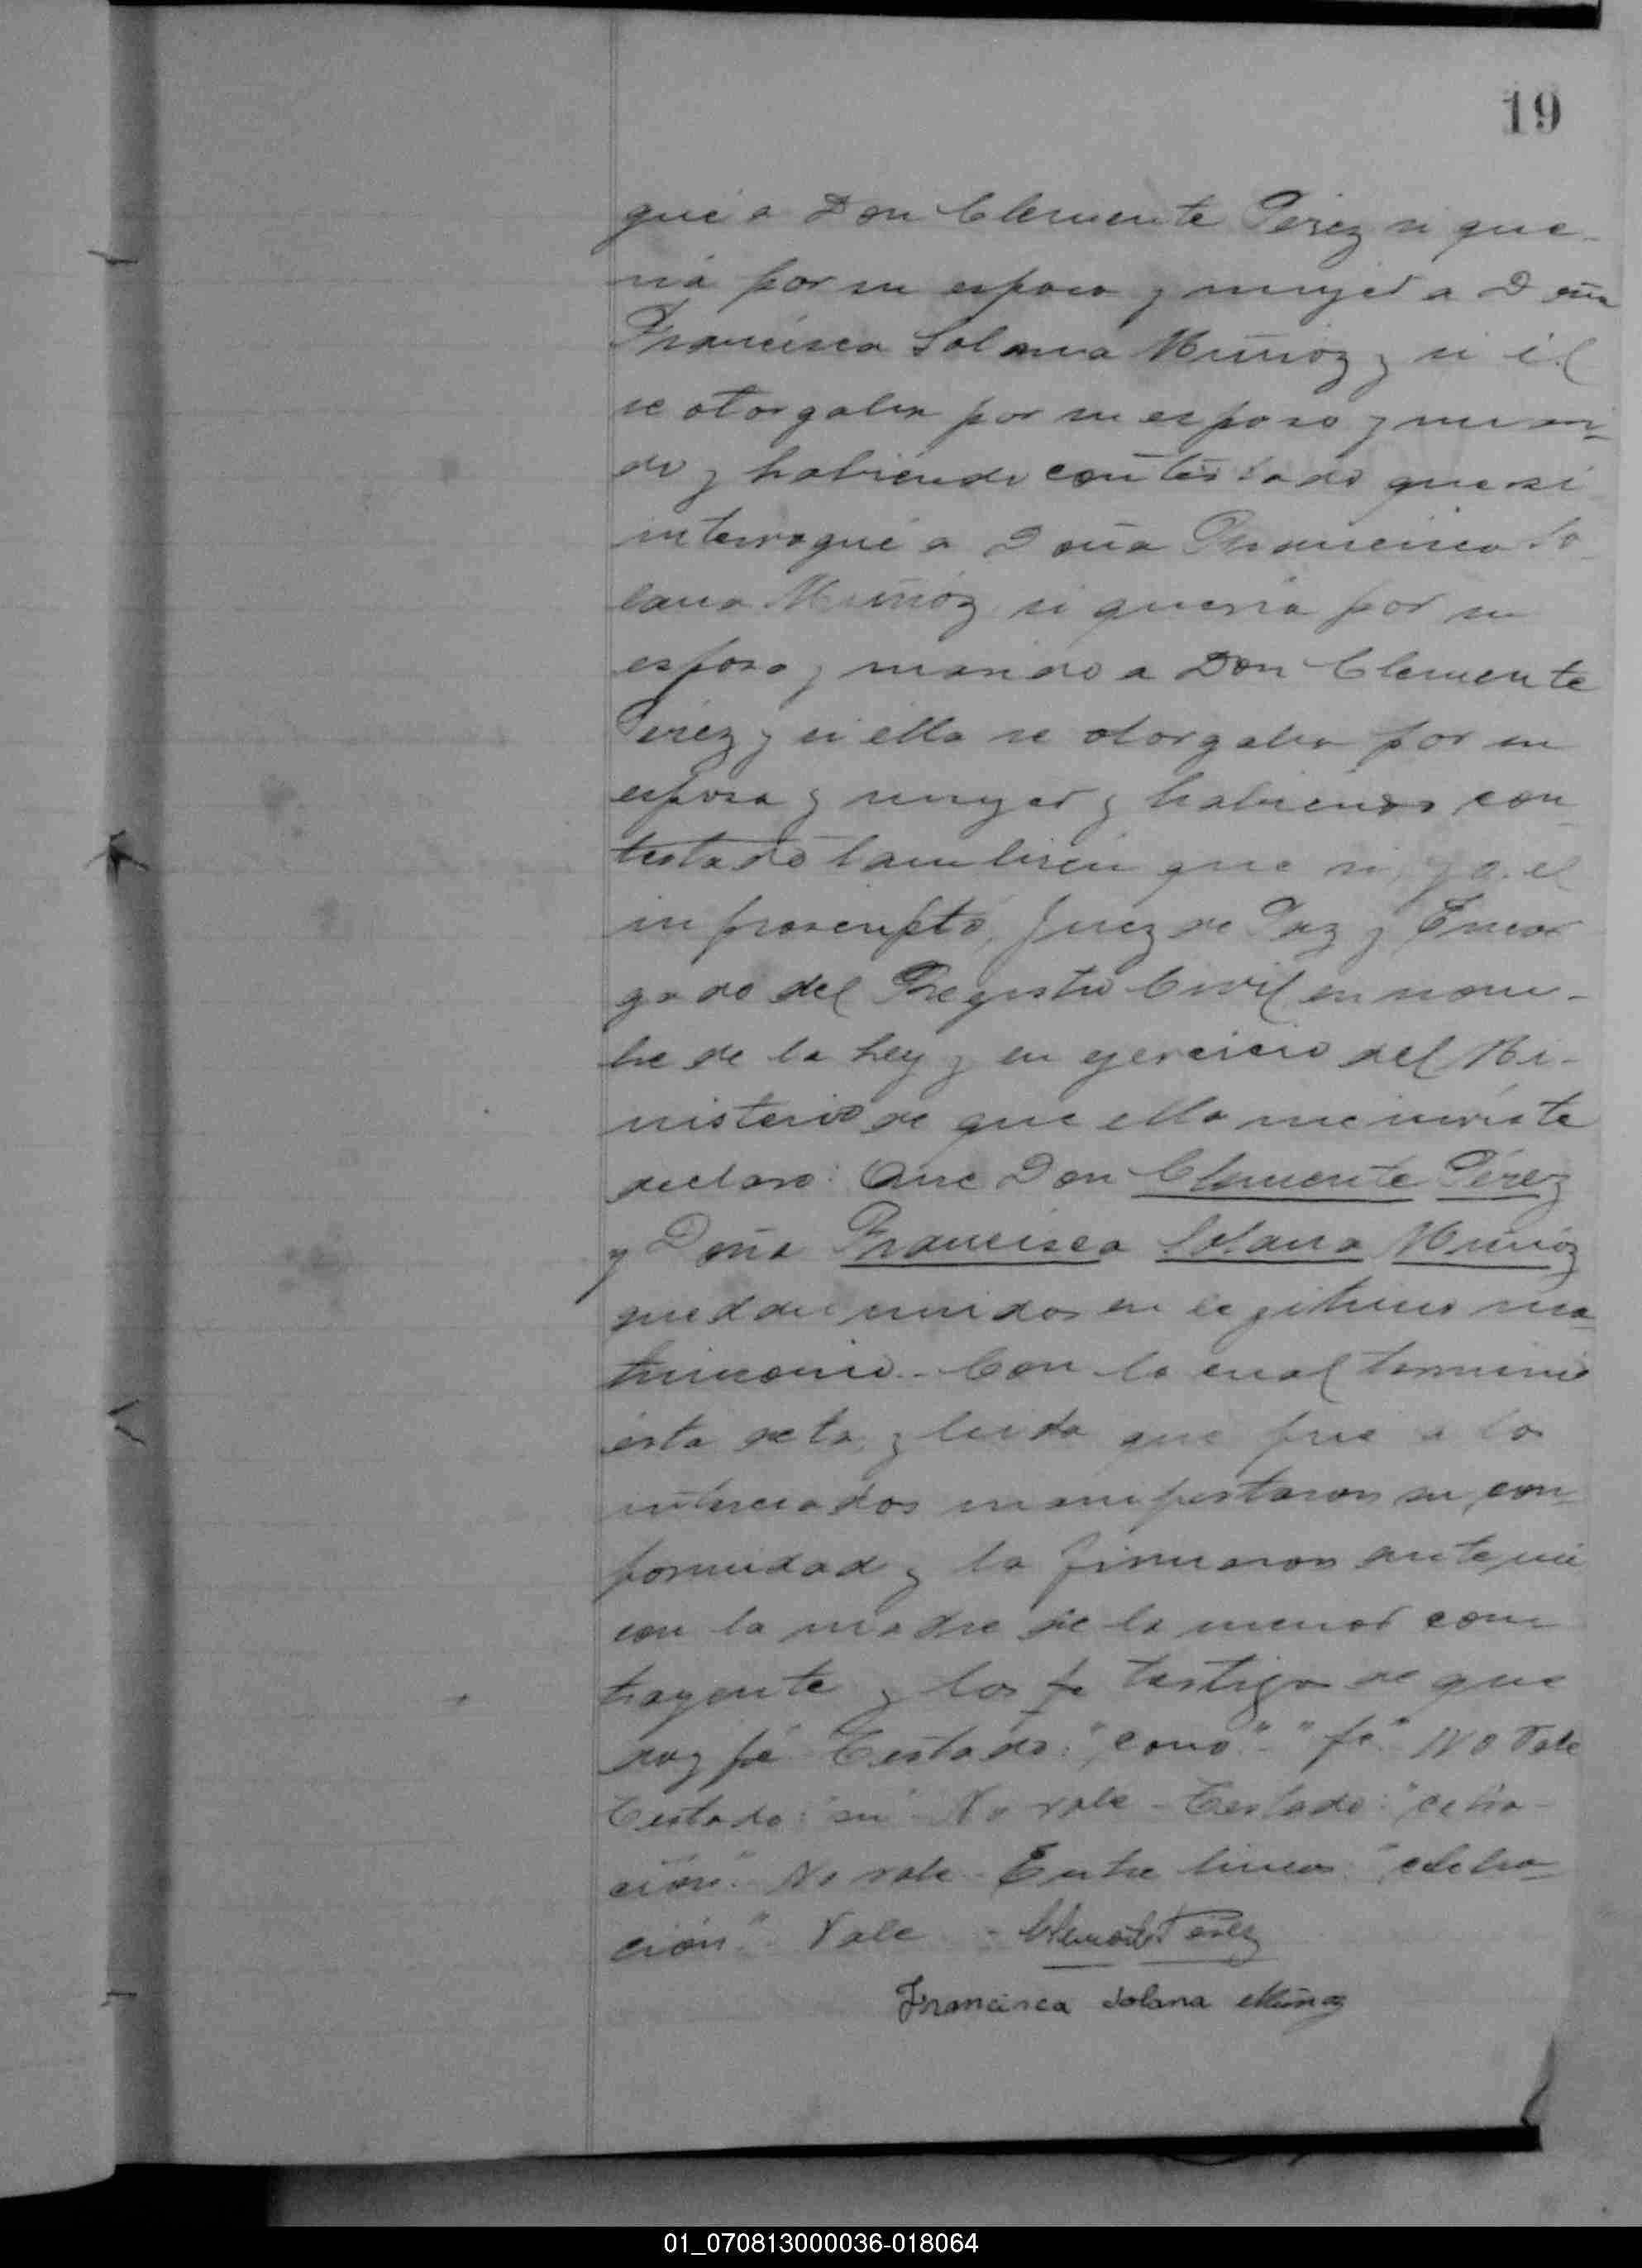 19
gué a Don Clemente Pérez si que-
ria por su esposa y mujer a Doña
Francisca Solana Muñoz y si él
se otorgaba por su esposo y mari-
do y habiendo contestado que si
interrogué a Doña Francisca So-
lana Muñoz si queria por su
esposo y marido a Don Clemente
Pérez y si ella se otorgaba por su
esposa y mujer y habiendo con-
testado tambien que si, yo el
infrascripto, Juez de Paz y Encar
gado del Registro Civil en nom-
bre de la Ley y en ejercicio del Mi-
nisterio de que ella me inviste
declaro: Que Don Clemente Pérez
y Doña Francisca Solana Muñoz
quedan unidos en legitimo ma-
trimonio.- Con lo cual termino
esta acta, y leida que fue a los
interesados manifestaron su con-
formidad y la firmaron ante mi
con la madre de la menor con
trayente y los testigos de que
doy fé Testado: "como"- "fe" No Vale
Testado: "su" No vale - Testado: "cebra-
ción" No vale - Entre lineas: "celebra-
ción" Vale - Clemente Pérez
Francisca Solana Muñoz
01_070813000036-018064